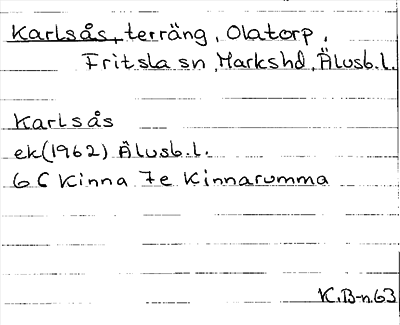 Karlsås, terräng, Olatorp,
Fritsla sn, Markshd, Älvsb.l.
Karlsås
ek(1962) Älvsb.l.
6 C Kinna 7e Kinnarumma
K.B-n.63